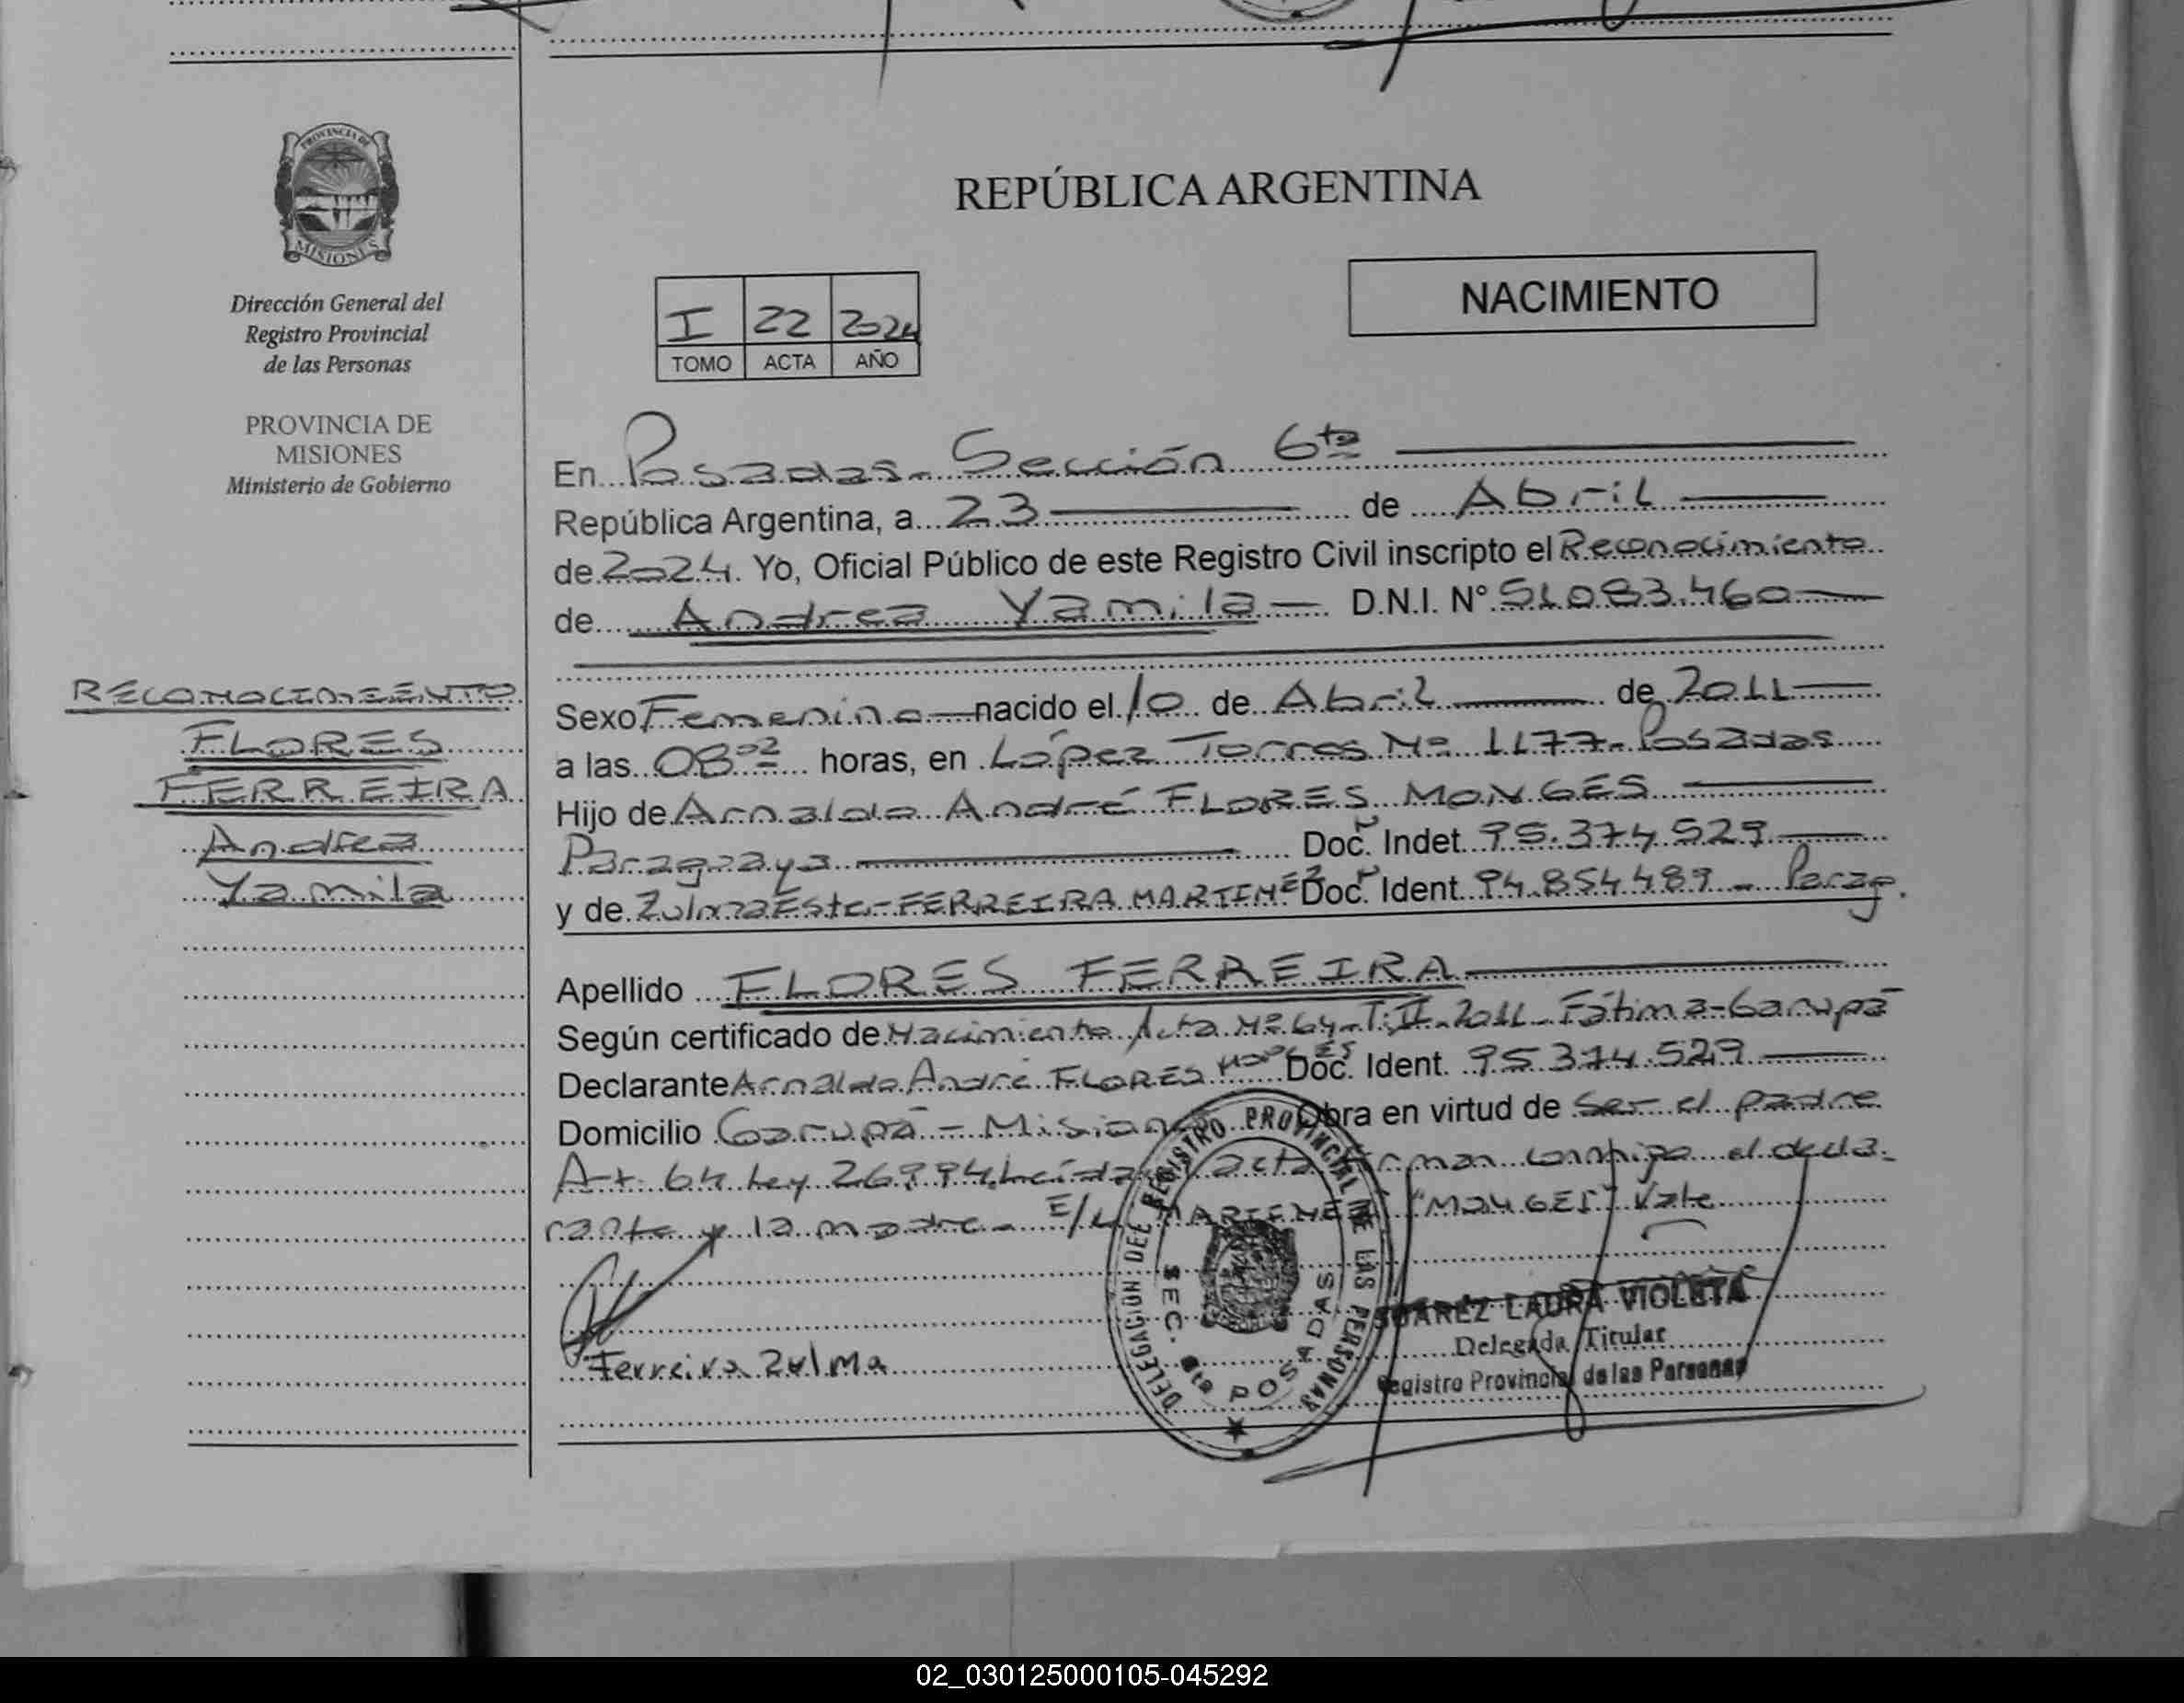 PROVINCIA DE
MISIONES
Dirección General del
Registro Provincial
de las Personas
PROVINCIA DE
MISIONES
Ministerio de Gobierno
RECONOCIMIENTO
FLORES
FERREIRA
Andrea
Yamila
REPÚBLICA ARGENTINA
NACIMIENTO
I 22 2024
TOMO ACTA AÑO
En Posadas - Sección 6ta
República Argentina, a 23 de Abril
de 2024. Yo, Oficial Público de este Registro Civil inscripto el Reconocimiento
de Andrea Yamila D.N.I. N° 51.083.460
Sexo Femenino nacido el 10 de Abril de 2011
a las 08:02 horas, en López Torres Nº 1177 - Posadas
Hijo de Arnaldo André FLORES MONGES
Paraguaya Doc. Indet. 95.374.529
y de Zulma Este- FERREIRA MARTINEZ Doc. Ident. 94.854.489 - Parag.
Apellido FLORES FERREIRA
Según certificado de Nacimiento Acta Nº 64 - T: II - 2011 - Fátima - Garupá
Declarante Arnaldo André FLORES MONGES Doc. Ident. 95.374.529
Domicilio Garupá - Misiones Obra en virtud de ser el padre
Art. 64 Ley 26994. Leída acta firman conmigo el decla-
rante y la madre - E/L MARTINEZ "MONGES" Vale
Ferreira Zulma
DELEGACIÓN DEL REGISTRO PROVINCIAL DE LAS PERSONAS
SEC. 6ta POSADAS
SUAREZ LAURA VIOLETA
Delegada Titular
Registro Provincial de las Personas
02_030125000105-045292